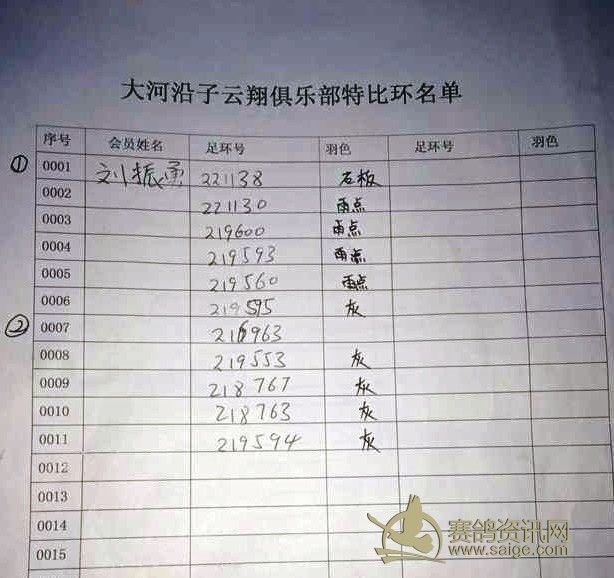 大河沿子云翔俱乐部特比环名单
序号 会员姓名 足环号 羽色 足环号 羽色
① 0001 刘振勇 221138 石板
0002 221130 雨点
0003 219600 雨点
0004 219593 雨点
0005 219560 雨点
0006 219595 灰
② 0007 216963
0008 219553 灰
0009 218767 灰
0010 218763 灰
0011 219594 灰
0012
0013
0014
0015
赛鸽资讯网
www.saige.com